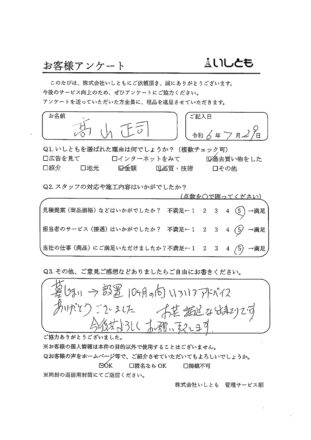 お客様アンケート
いしとも
このたびは、株式会社いしともにご依頼頂き、誠にありがとうございます。
今後のサービス向上のため、ぜひアンケートにご協力ください。
アンケートを送っていただいた方全員に、粗品を進呈させていただきます。
お名前
高山 正司
ご記入日
令和 6年 7月 29日
Q1. いしともを選ばれた理由は何でしょうか?（複数チェック可）
□広告を見て □インターネットをみて ☑過去買い物をした
□紹介 □地元 ☑金額 ☑品質・技術 □その他
Q2. スタッフの対応や施工内容はいかがでしたか?
（点数を○で囲ってください）
見積提案（商品価格）などはいかがでしたか? 不満足← 1 2 3 4 5 →満足
担当者のサービス（接遇）はいかがでしたか? 不満足← 1 2 3 4 5 →満足
当社の仕事（商品）にご満足いただけましたか? 不満足← 1 2 3 4 5 →満足
Q3. その他、ご意見ご感想などありましたらご自由にお書きください。
墓じまい → 設置 10ヶ月の間 いろいろアドバイス
ありがとうございました
今後共よろしくお願い致します
ご協力ありがとうございました。
※お客様の個人情報は本件の目的以外で使用することはございません。
Q お客様の声をホームページ等で、ご紹介させていただいてもよろしいでしょうか。
☑OK □匿名なら OK □掲載不可
※同封の返信用封筒にてご返信ください。
株式会社いしとも 管理サービス部